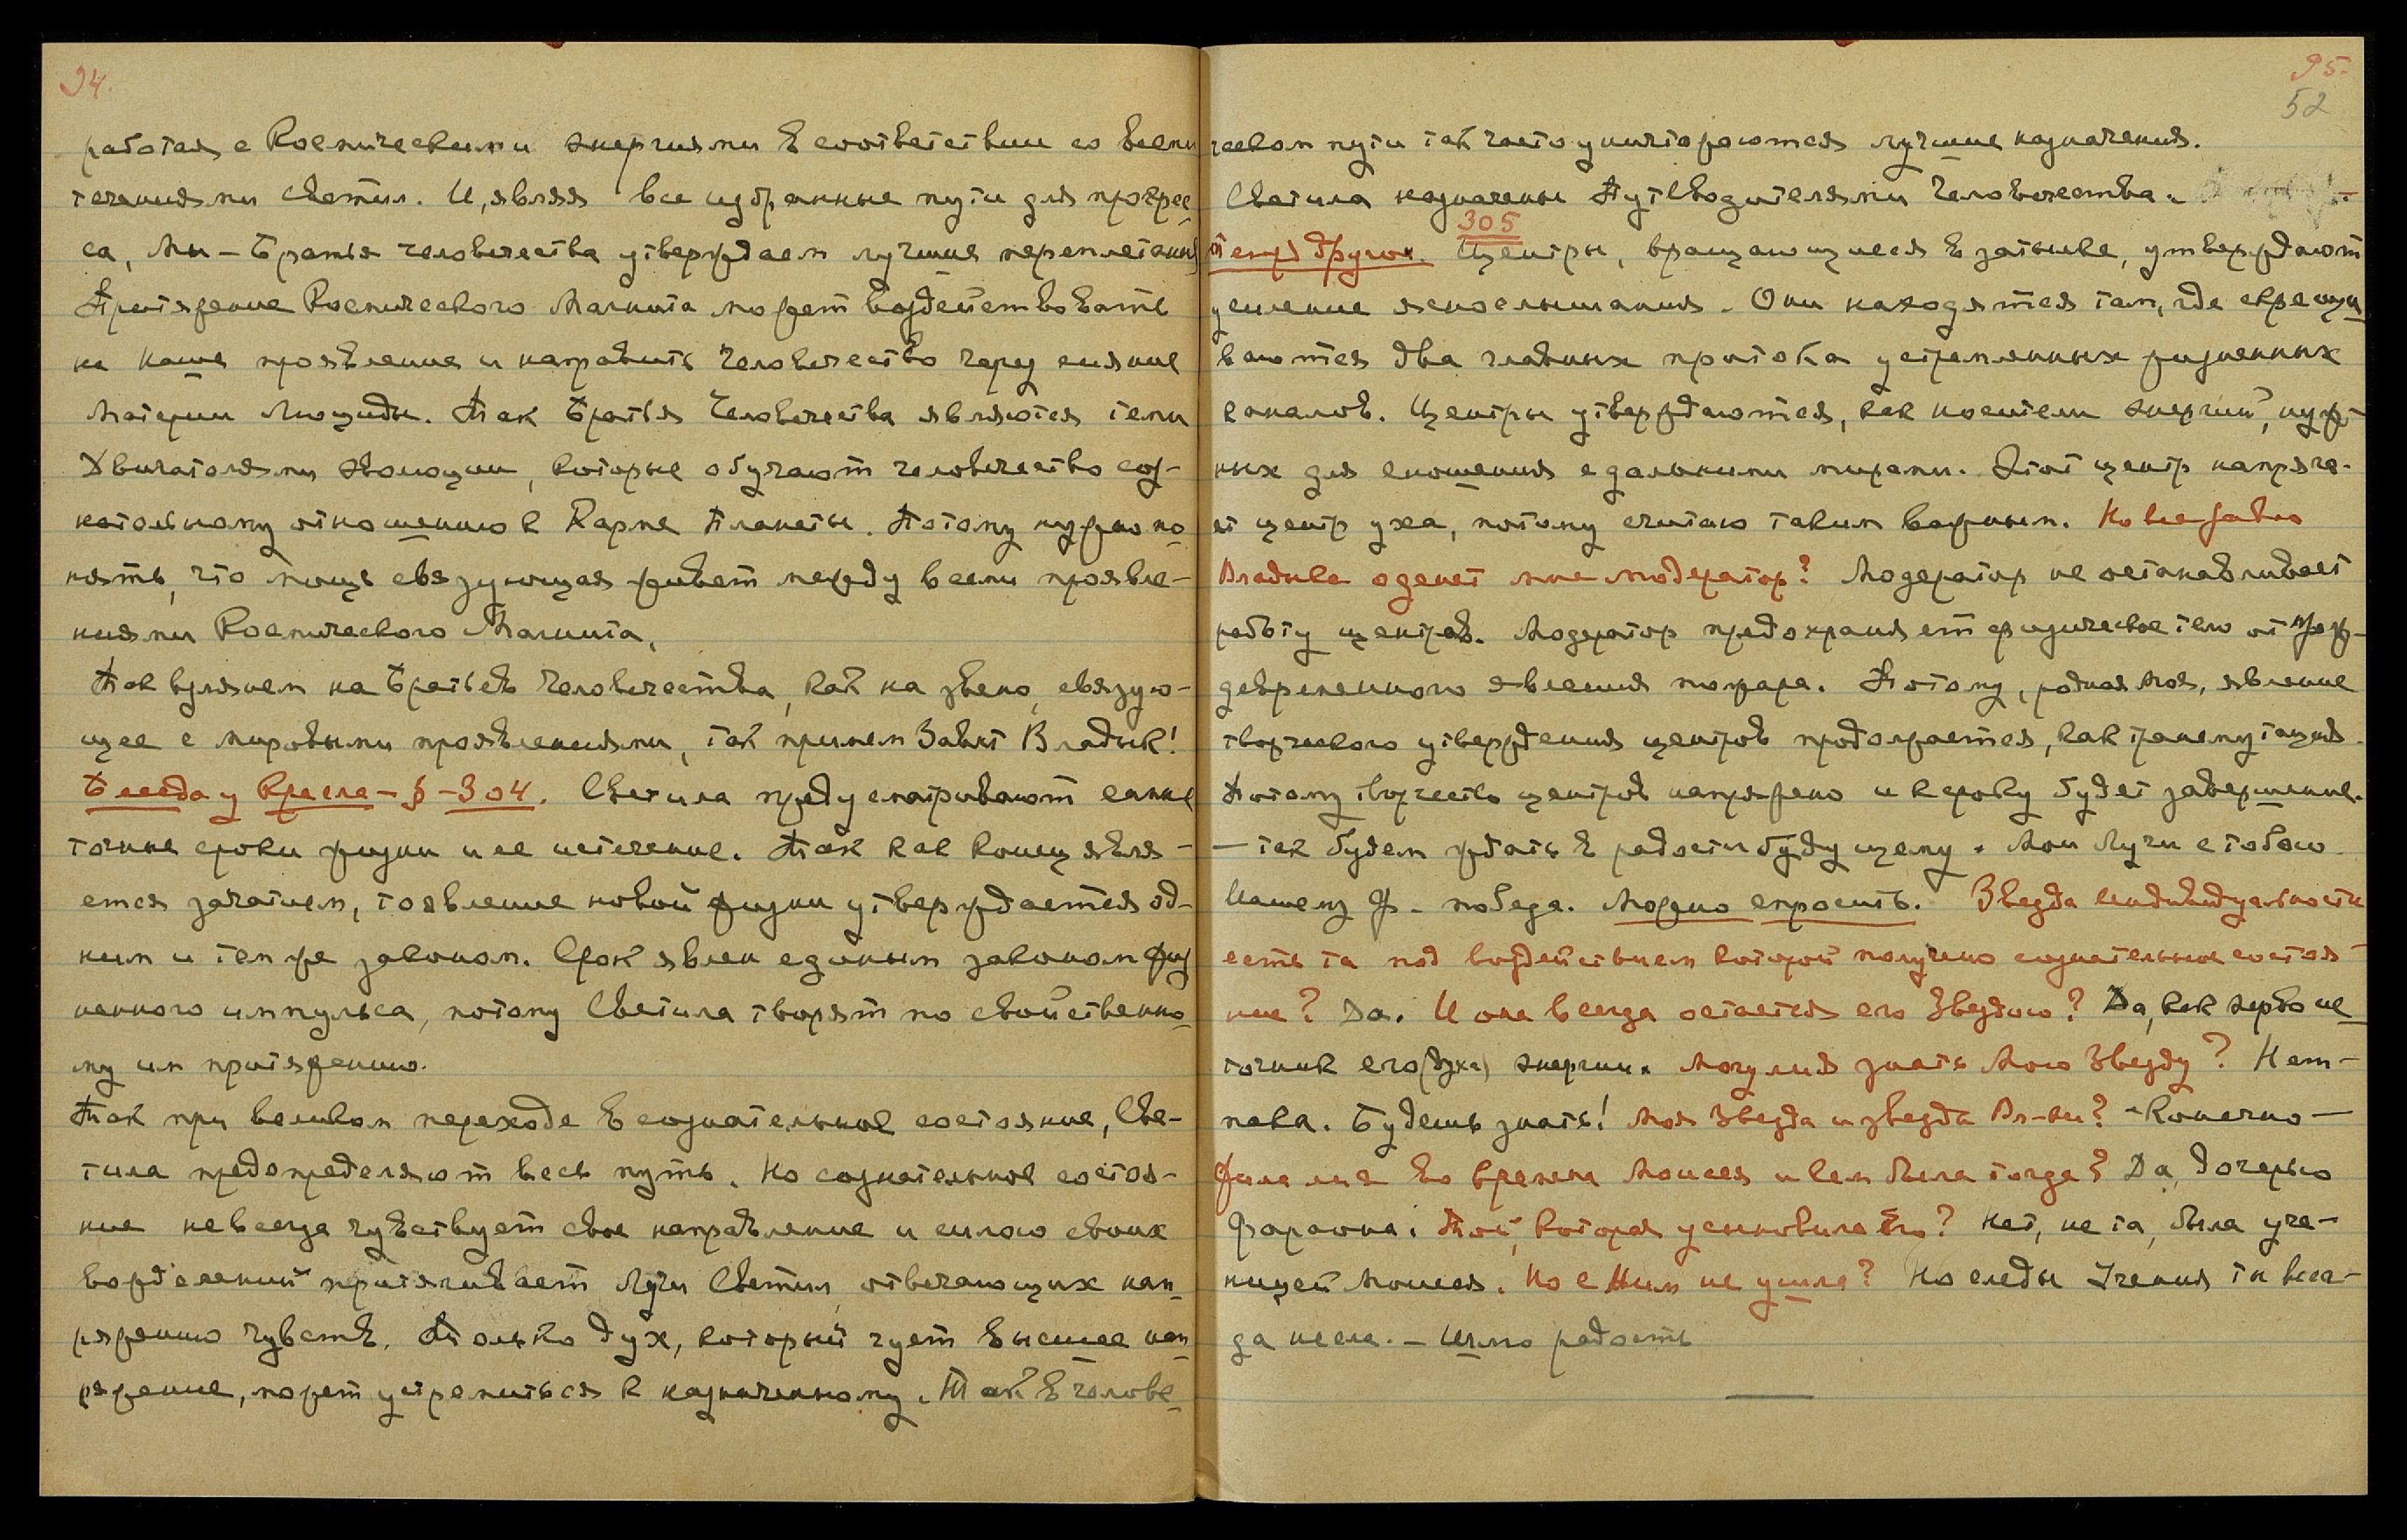 94.
работая с Космическими энергиями в соответствии со всеми
течениями Светил. И, являя все избранные пути для прогрес-
са, Мы – Братья человечества утверждаем лучшие переплетания
Притяжение Космического Магнита может воздействовать
на наше проявление и направить Человечество через сияние
Материи Люциды. Так Братья Человечества являются теми
Двигателями эволюции, которые обучают человечество соз-
нательному отношению к Карме Планеты. Потому нужно по-
нять, что мощь связующая живет между всеми проявле-
ниями Космического Магнита.
Так взглянем на Братьев Человечества, как на звено, связую-
щее с мировыми проявлениями, так примем Завет Владык!
Беседа у Кресла – § – 304. Светила предусматривают самые
точные сроки жизни и ее истечение. Так как конец явля-
ется зачатием, то явление новой жизни утверждается од-
ним и тем же законом. Срок явлен единым законом жиз
ненного импульса, потому Светила творят по свойственно-
му им притяжению.
Так при великом переходе в сознательное состояние, Све-
тила предопределяют весь путь. Но сознательное состоя-
ние не всегда чувствует свое направление и силою своих
вожделений притягивает Лучи Светил, отвечающих нап-
ряжению чувств. Только дух, который чует высшее нап-
ряжение, может устремиться к назначенному. Так в челове-
95.
52
ческом пути так часто уничтожаются лучшие назначения.
Светила назначены Путеводителями Человечества.
305
Теперь другое. Центры, вращающиеся в затылке, утверждают
усиление яснослышания. Они находятся там, где скрещи-
ваются два главных притока устремленных жизненных
каналов. Центры утверждаются, как носители энергий, нуж-
ных для сношения с дальними мирами. Этот центр напряга-
ет центр уха, потому считаю таким важным. Но все же
Владыка оденет мне модератор? Модератор не останавливает
работу центров. Модератор предохраняет физическое тело от преж-
девременного явления пожара. Потому, родная моя, явление
творческого утверждения центров продолжается, как трансмутация.
Потому творчество центров напряжено и к сроку будет завершение.
– так будем ждать в радости будущему. Мои Лучи с тобою.
Нашему Ф. – победа. Можно спросить. Звезда индивидуальности
есть та под воздействием которой получено сознательное состоя-
ние? Да. И она всегда остается его Звездою? Да, как перво ис-
точник его (духа) энергии. Могу ли я знать Мою Звезду? Нет –
пока. Будешь знать! Моя Звезда и звезда Вл-ки? – Конечно –
Жила ли я во времена Моисея и кем была тогда? Да, дочерью
фараона. Той, которая усыновила Его? Нет, не та, была уче-
ницей Моисея. Но с Ним не ушла? Но следы Учения ты всег-
да несла. – радость